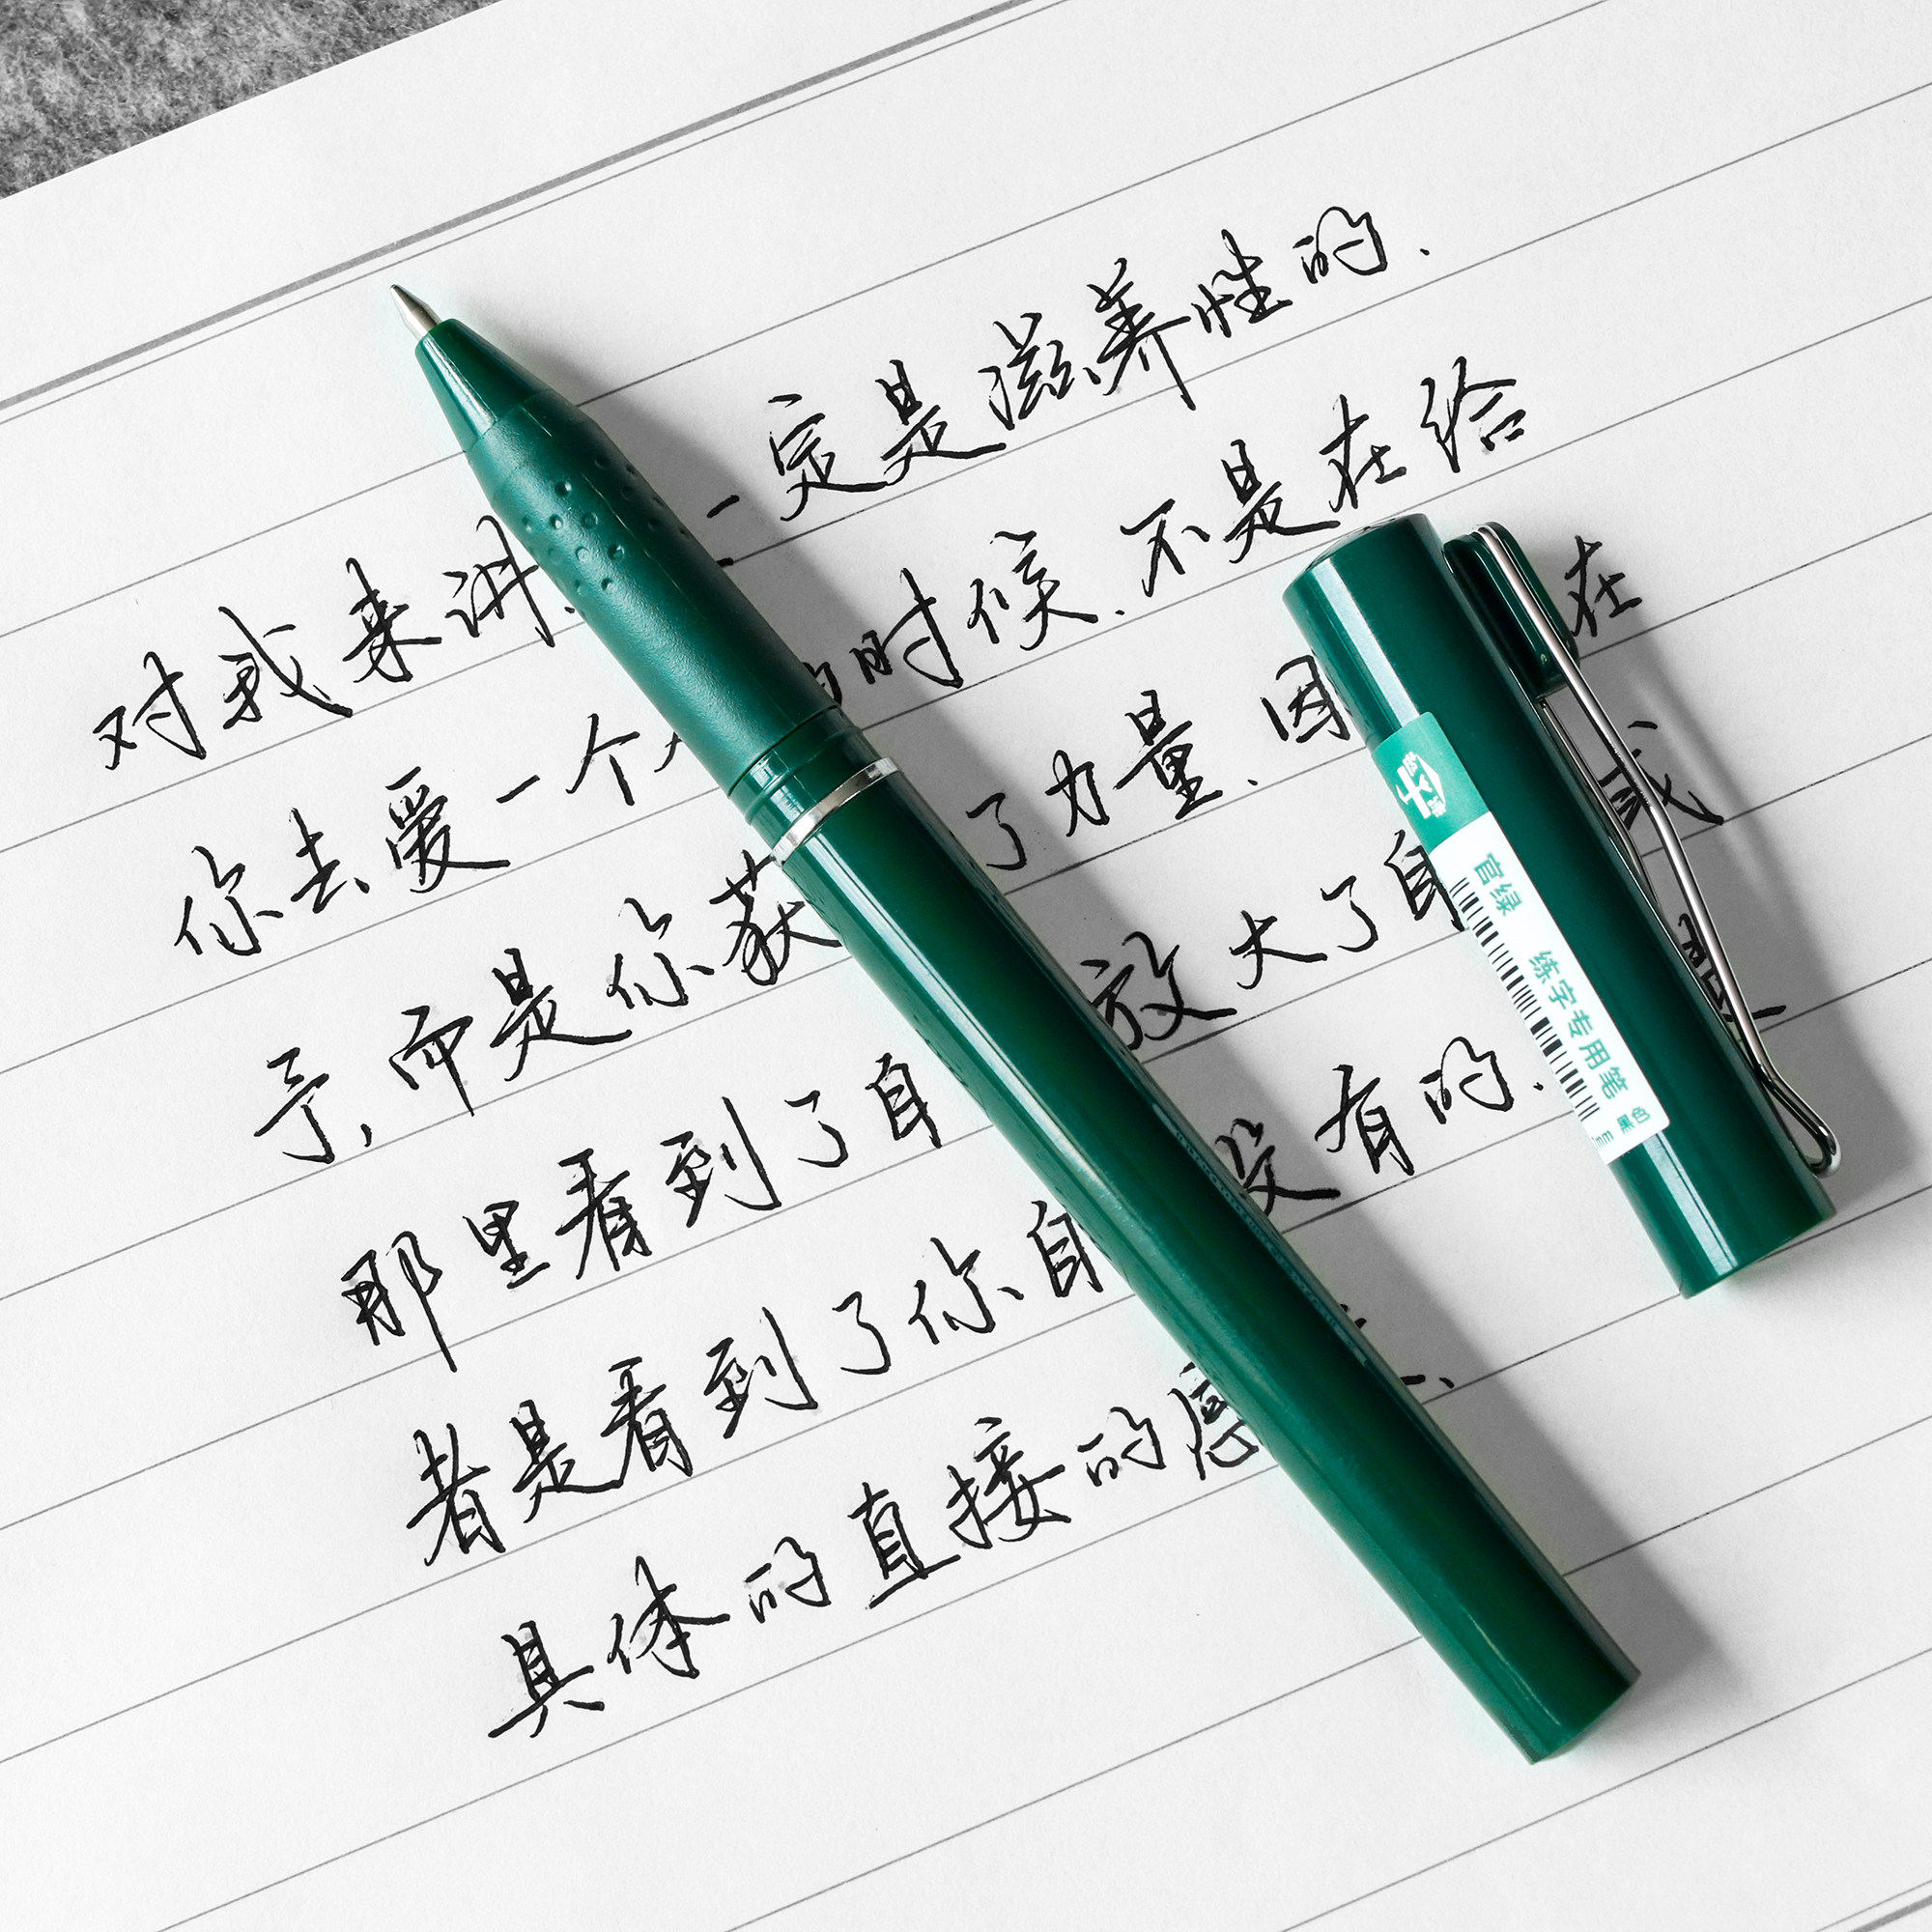 对我来讲. 一定是滋养性的.
你去爱一个人的时候.不是在给
予,而是你获 了力量.因 在
那里看到了自 放大了自 或
者是看到了你自 没有的.
具体的直接的感
官绿 练字专用笔 黑色